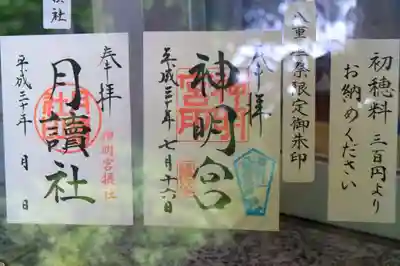 初穂料 三百円より
お納めください
限定御朱印
奉拝
神明宮
平成三十年 七月十六日
奉拝
月讀社
神明宮摂社
平成三十年 月 日